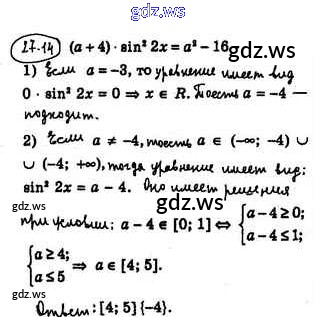 gdz.ws
27.14 (a + 4) · sin² 2x = a² − 16
1) Если a = −3, то уравнение имеет вид
0 · sin² 2x = 0 ⇒ x ∈ R. То есть a = −4 —
подходит.
2) Если a ≠ −4, то есть a ∈ (−∞; −4) ∪
∪ (−4; +∞), тогда уравнение имеет вид:
sin² 2x = a − 4. Оно имеет решения
gdz.ws
при условии: a − 4 ∈ [0; 1] ⇔ { a − 4 ≥ 0; a − 4 ≤ 1;
{ a ≥ 4; a ≤ 5 ⇒ a ∈ [4; 5].
gdz.ws
Ответ: [4; 5] {−4}.